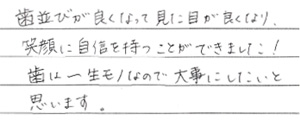 歯並びが良くなって見た目が良くなり、
笑顔に自信を持つことができました!
歯は一生モノなので大事にしたいと
思います。